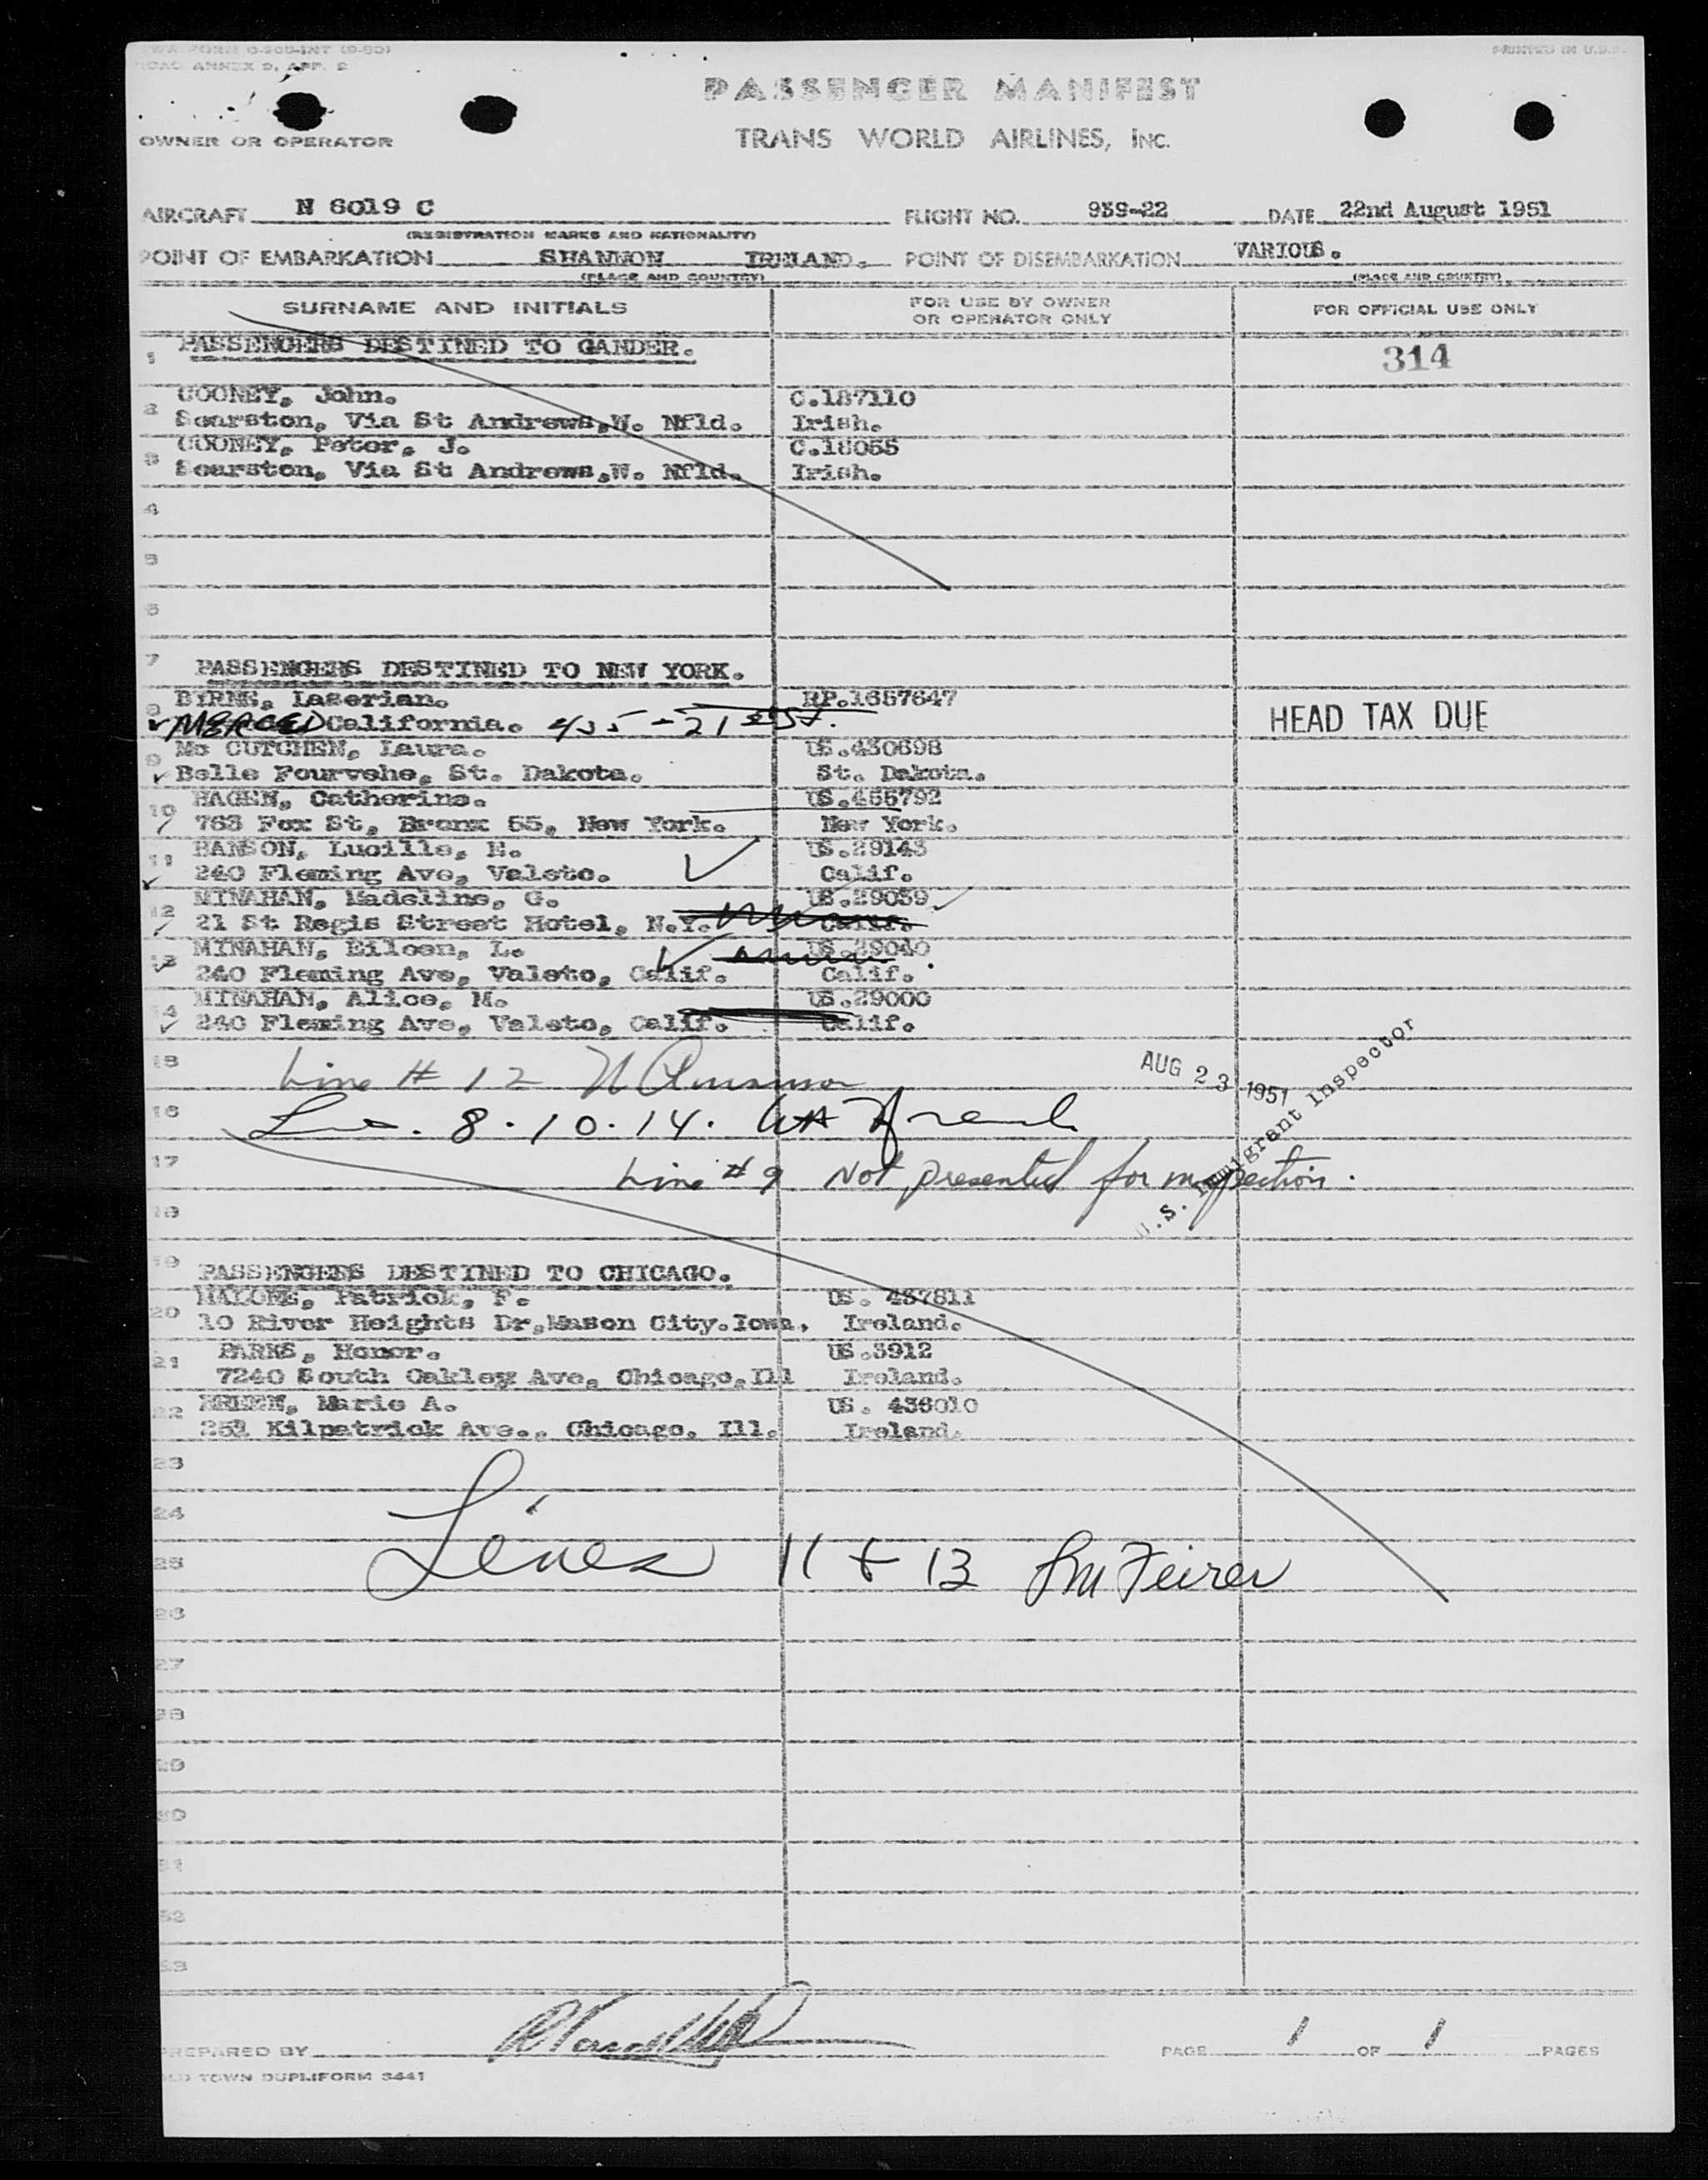 TWA FORM O-200-INT (9-50)
PRINTED IN U.S.A.
ICAO ANNEX 9, APP. 2
PASSENGER MANIFEST
OWNER OR OPERATOR
TRANS WORLD AIRLINES, INC.
AIRCRAFT N 6019 C FLIGHT NO. 939-22 DATE 22nd August 1951
(REGISTRATION MARKS AND NATIONALITY)
POINT OF EMBARKATION SHANNON IRELAND. POINT OF DISEMBARKATION VARIOUS.
(PLACE AND COUNTRY) (PLACE AND COUNTRY)
SURNAME AND INITIALS FOR USE BY OWNER OR OPERATOR ONLY FOR OFFICIAL USE ONLY
1 PASSENGERS DESTINED TO GANDER. 314
COONEY, John. C.187110
2 Searston, Via St Andrews,W. Nfld. Irish.
COONEY, Peter, J. C.18055
3 Searston, Via St Andrews,W. Nfld. Irish.
4
5
6
7 PASSENGERS DESTINED TO NEW YORK.
BYRNE, Laserian. RP.1657647
8 MERCED California. HEAD TAX DUE
Mc CUTCHEN, Laura. US.430698
9 Belle Fourvehe, St. Dakota. St. Dakota.
HAGEN, Catherine. US.456792
10 763 Fox St, Bronx 55, New York. New York.
HANSON, Lucille, E. US.29143
11 240 Fleming Ave, Valeto. Calif.
MINAHAN, Madeline, G. US.29039
12 21 St Regis Street Hotel, N.Y. Calif.
MINAHAN, Eileen, L. US.29040
13 240 Fleming Ave, Valeto, Calif. Calif.
MINAHAN, Alice, M. US.29000
14 240 Fleming Ave, Valeto, Calif. Calif.
15 Line # 12
AUG 23 1951
U.S. Immigrant Inspector
16 8.10.14.
17 Line #9 Not presented for inspection.
18
19 PASSENGERS DESTINED TO CHICAGO.
MALONE, Patrick, F. US. 437811
20 10 River Heights Dr,Mason City.Iowa. Ireland.
PARKS, Honor. US.3912
21 7240 South Oakley Ave, Chicago,Ill Ireland.
BREEN, Marie A. US. 436010
22 Kilpatrick Ave., Chicago, Ill. Ireland.
23
24
25 Lines 11 + 13
26
27
28
29
30
31
32
33
PREPARED BY PAGE 1 OF 1 PAGES
OLD TOWN DUPLIFORM 3441